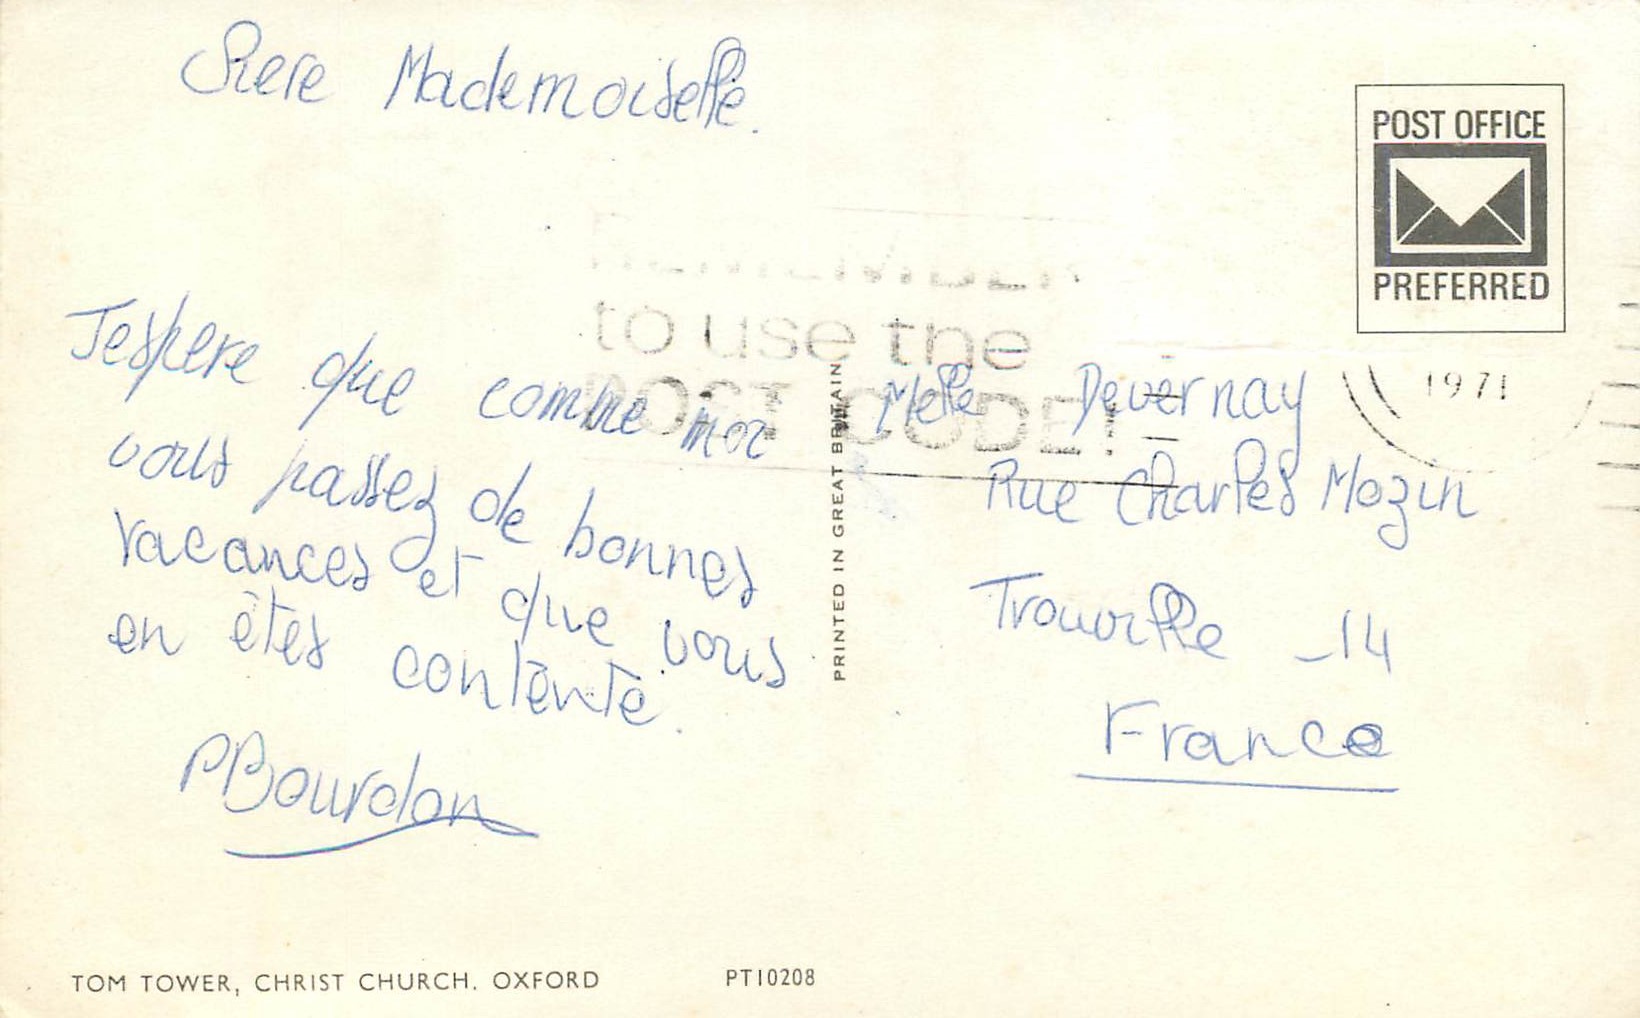 Chere Mademoiselle.
J'espere que comme moi
vous passez de bonnes
vacances et que vous
en êtes contente.
PBourdon
TOM TOWER, CHRIST CHURCH. OXFORD
PT10208
PRINTED IN GREAT BRITAIN
REMEMBER
to use the
POST CODE!
POST OFFICE
PREFERRED
1971
Melle Devernay
Rue Charles Mozin
Trouville _14
France